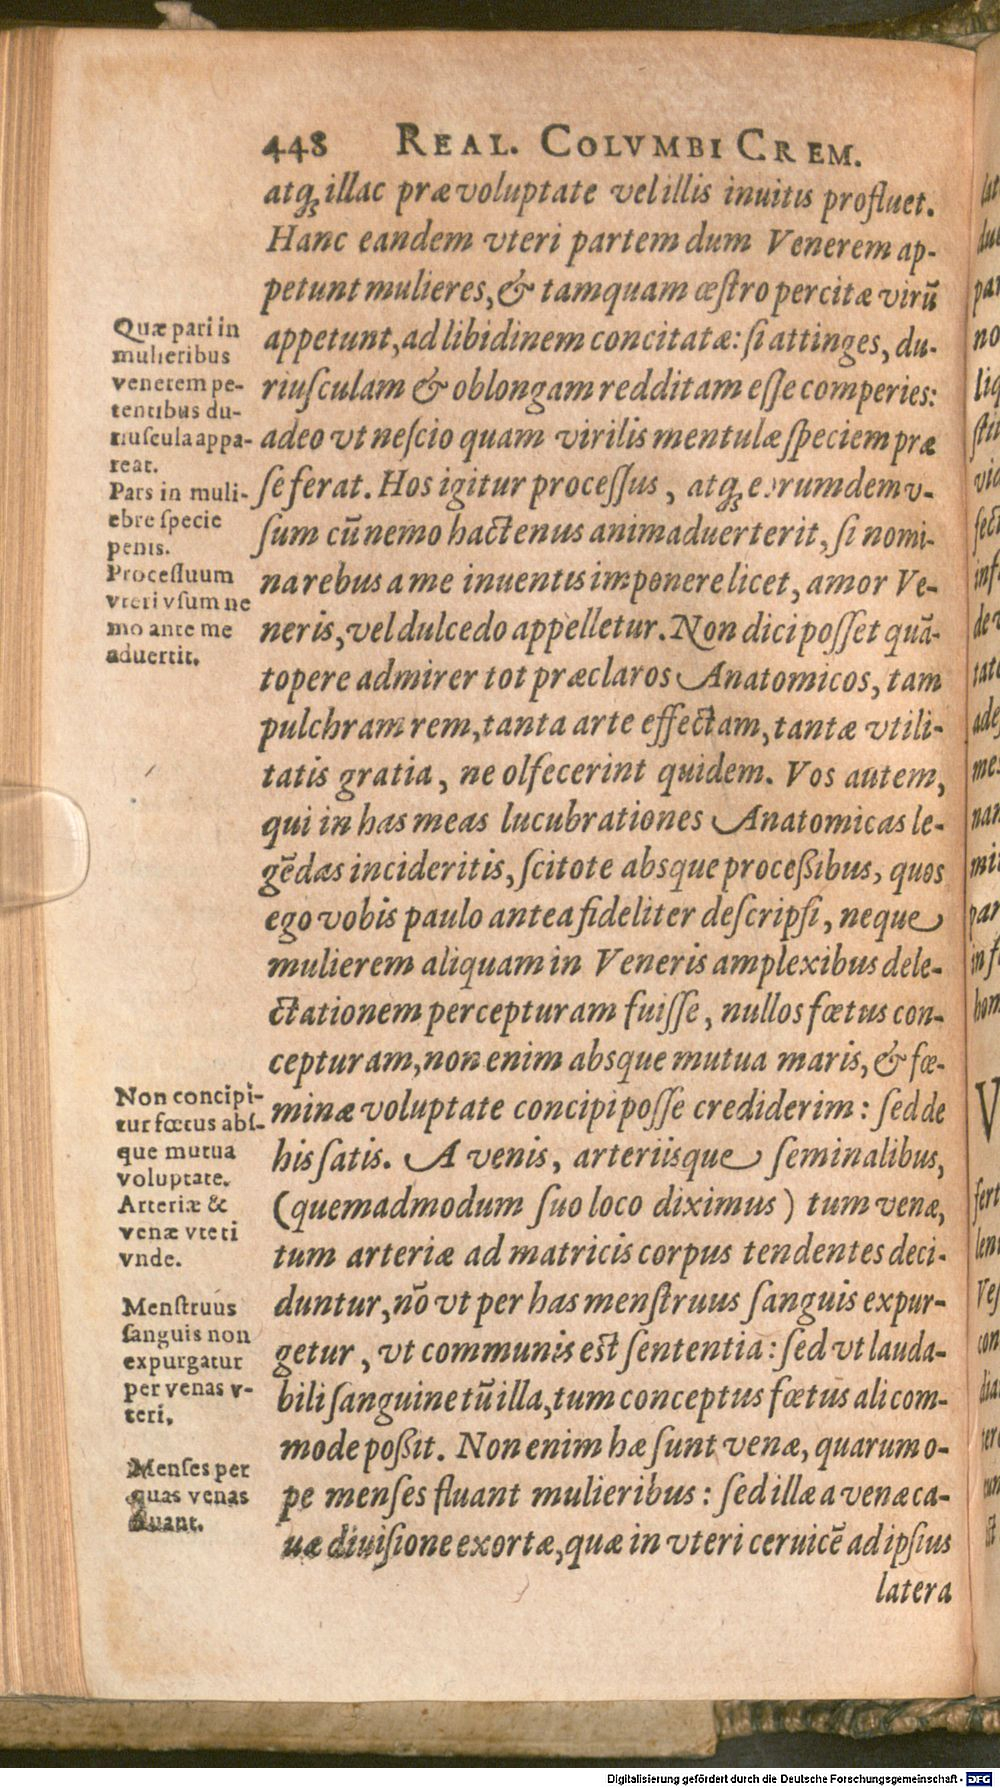 448 REAL. COLVMBI CREM.
atq; illac præ voluptate vel illis inuitis profluet.
Hanc eandem vteri partem dum Venerem ap-
petunt mulieres, & tamquam œstro percitæ virū
appetunt, ad libidinem concitatæ: si attinges, du-
riusculam & oblongam redditam esse comperies:
adeo vt nescio quam virilis mentulæ speciem præ
se ferat. Hos igitur processus, atq; eorumdem v-
sum cū nemo hactenus animaduerterit, si nomi-
na rebus a me inuentis imponere licet, amor Ve-
neris, vel dulcedo appelletur. Non dici posset quā-
topere admirer tot præclaros Anatomicos, tam
pulchram rem, tanta arte effectam, tantæ vtili-
tatis gratia, ne olfecerint quidem. Vos autem,
qui in has meas lucubrationes Anatomicas le-
gēdas incideritis, scitote absque processibus, quos
ego vobis paulo antea fideliter descripsi, neque
mulierem aliquam in Veneris amplexibus dele-
ctationem percepturam fuisse, nullos fœtus con-
cepturam, non enim absque mutua maris, & fœ-
minæ voluptate concipi posse crediderim: sed de
his satis. A venis, arteriisque seminalibus,
(quemadmodum suo loco diximus) tum venæ,
tum arteriæ ad matricis corpus tendentes deci-
duntur, nō vt per has menstruus sanguis expur-
getur, vt communis est sententia: sed vt lauda-
bili sanguine tū illa, tum conceptus fœtus ali com-
mode possit. Non enim hæ sunt venæ, quarum o-
pe menses fluant mulieribus: sed illæ a venæ ca-
uæ diuisione exortæ, quæ in vteri ceruicē ad ipsius
latera
Quæ pari in
mulieribus
venerem pe-
tentibus du-
riuscula appa-
reat.
Pars in muli-
ebre specie
penis.
Processuum
vteri vsum ne
mo ante me
aduertit.
Non concipi-
tur fœtus abs-
que mutua
voluptate.
Arteriæ &
venæ vteri
vnde.
Menstruus
sanguis non
expurgatur
per venas v-
teri.
Menses per
quas venas
fluant.
Digitalisierung gefördert durch die Deutsche Forschungsgemeinschaft - DFG